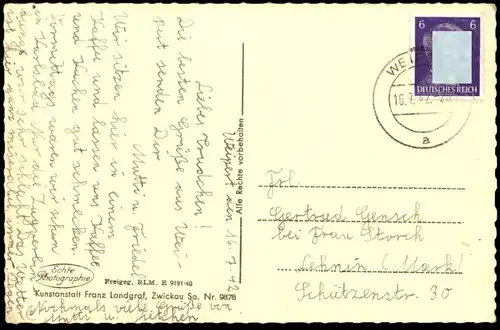 Weipert den 16.7.42
Liebe Trudchen!
Die besten Grüße aus Wei-
pert senden Dir
Mutti u. Friedel
Wir sitzen hier in einem
Kaffee und lassen uns Kaffee
und Kuchen gut schmecken.
Vormittags waren wir schon
in
war sehr schlecht. Das Wetter
Nochmals viele Grüße von
Mutti u.
Alle Rechte vorbehalten
Echte
Photographie
Freigeg. RLM. E 9191/40
Kunstanstalt Franz Landgraf, Zwickau Sa. Nr. 9878
6 6
DEUTSCHES REICH
WEI
16.7.42
a
Frl.
Gertrud Gensch
bei Frau Storch
Lehnin (Mark)
Schützenstr. 30